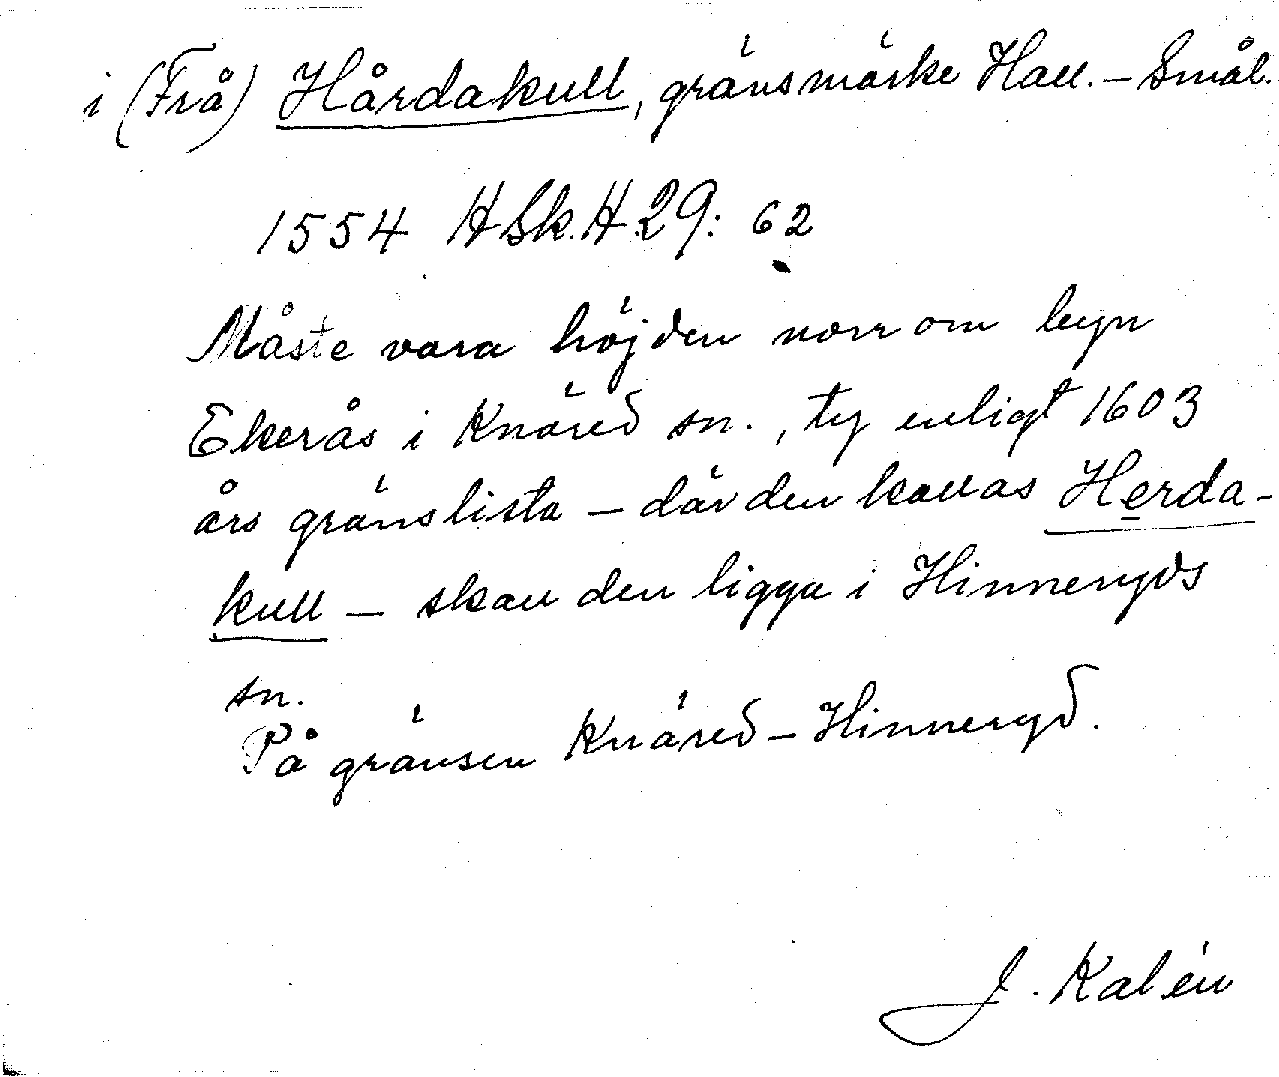 i (Frå) Hårdakull, gränsmärke Hall. – Smål.
1554 HSk.H 29: 62
Måste vara höjden norr om byn
Ekerås i Knäred sn., ty enligt 1603
års gränslista – där den kallas Herda-
kull – skall den ligga i Hinneryds
sn.
På gränsen Knäred – Hinneryd.
J. Kalén